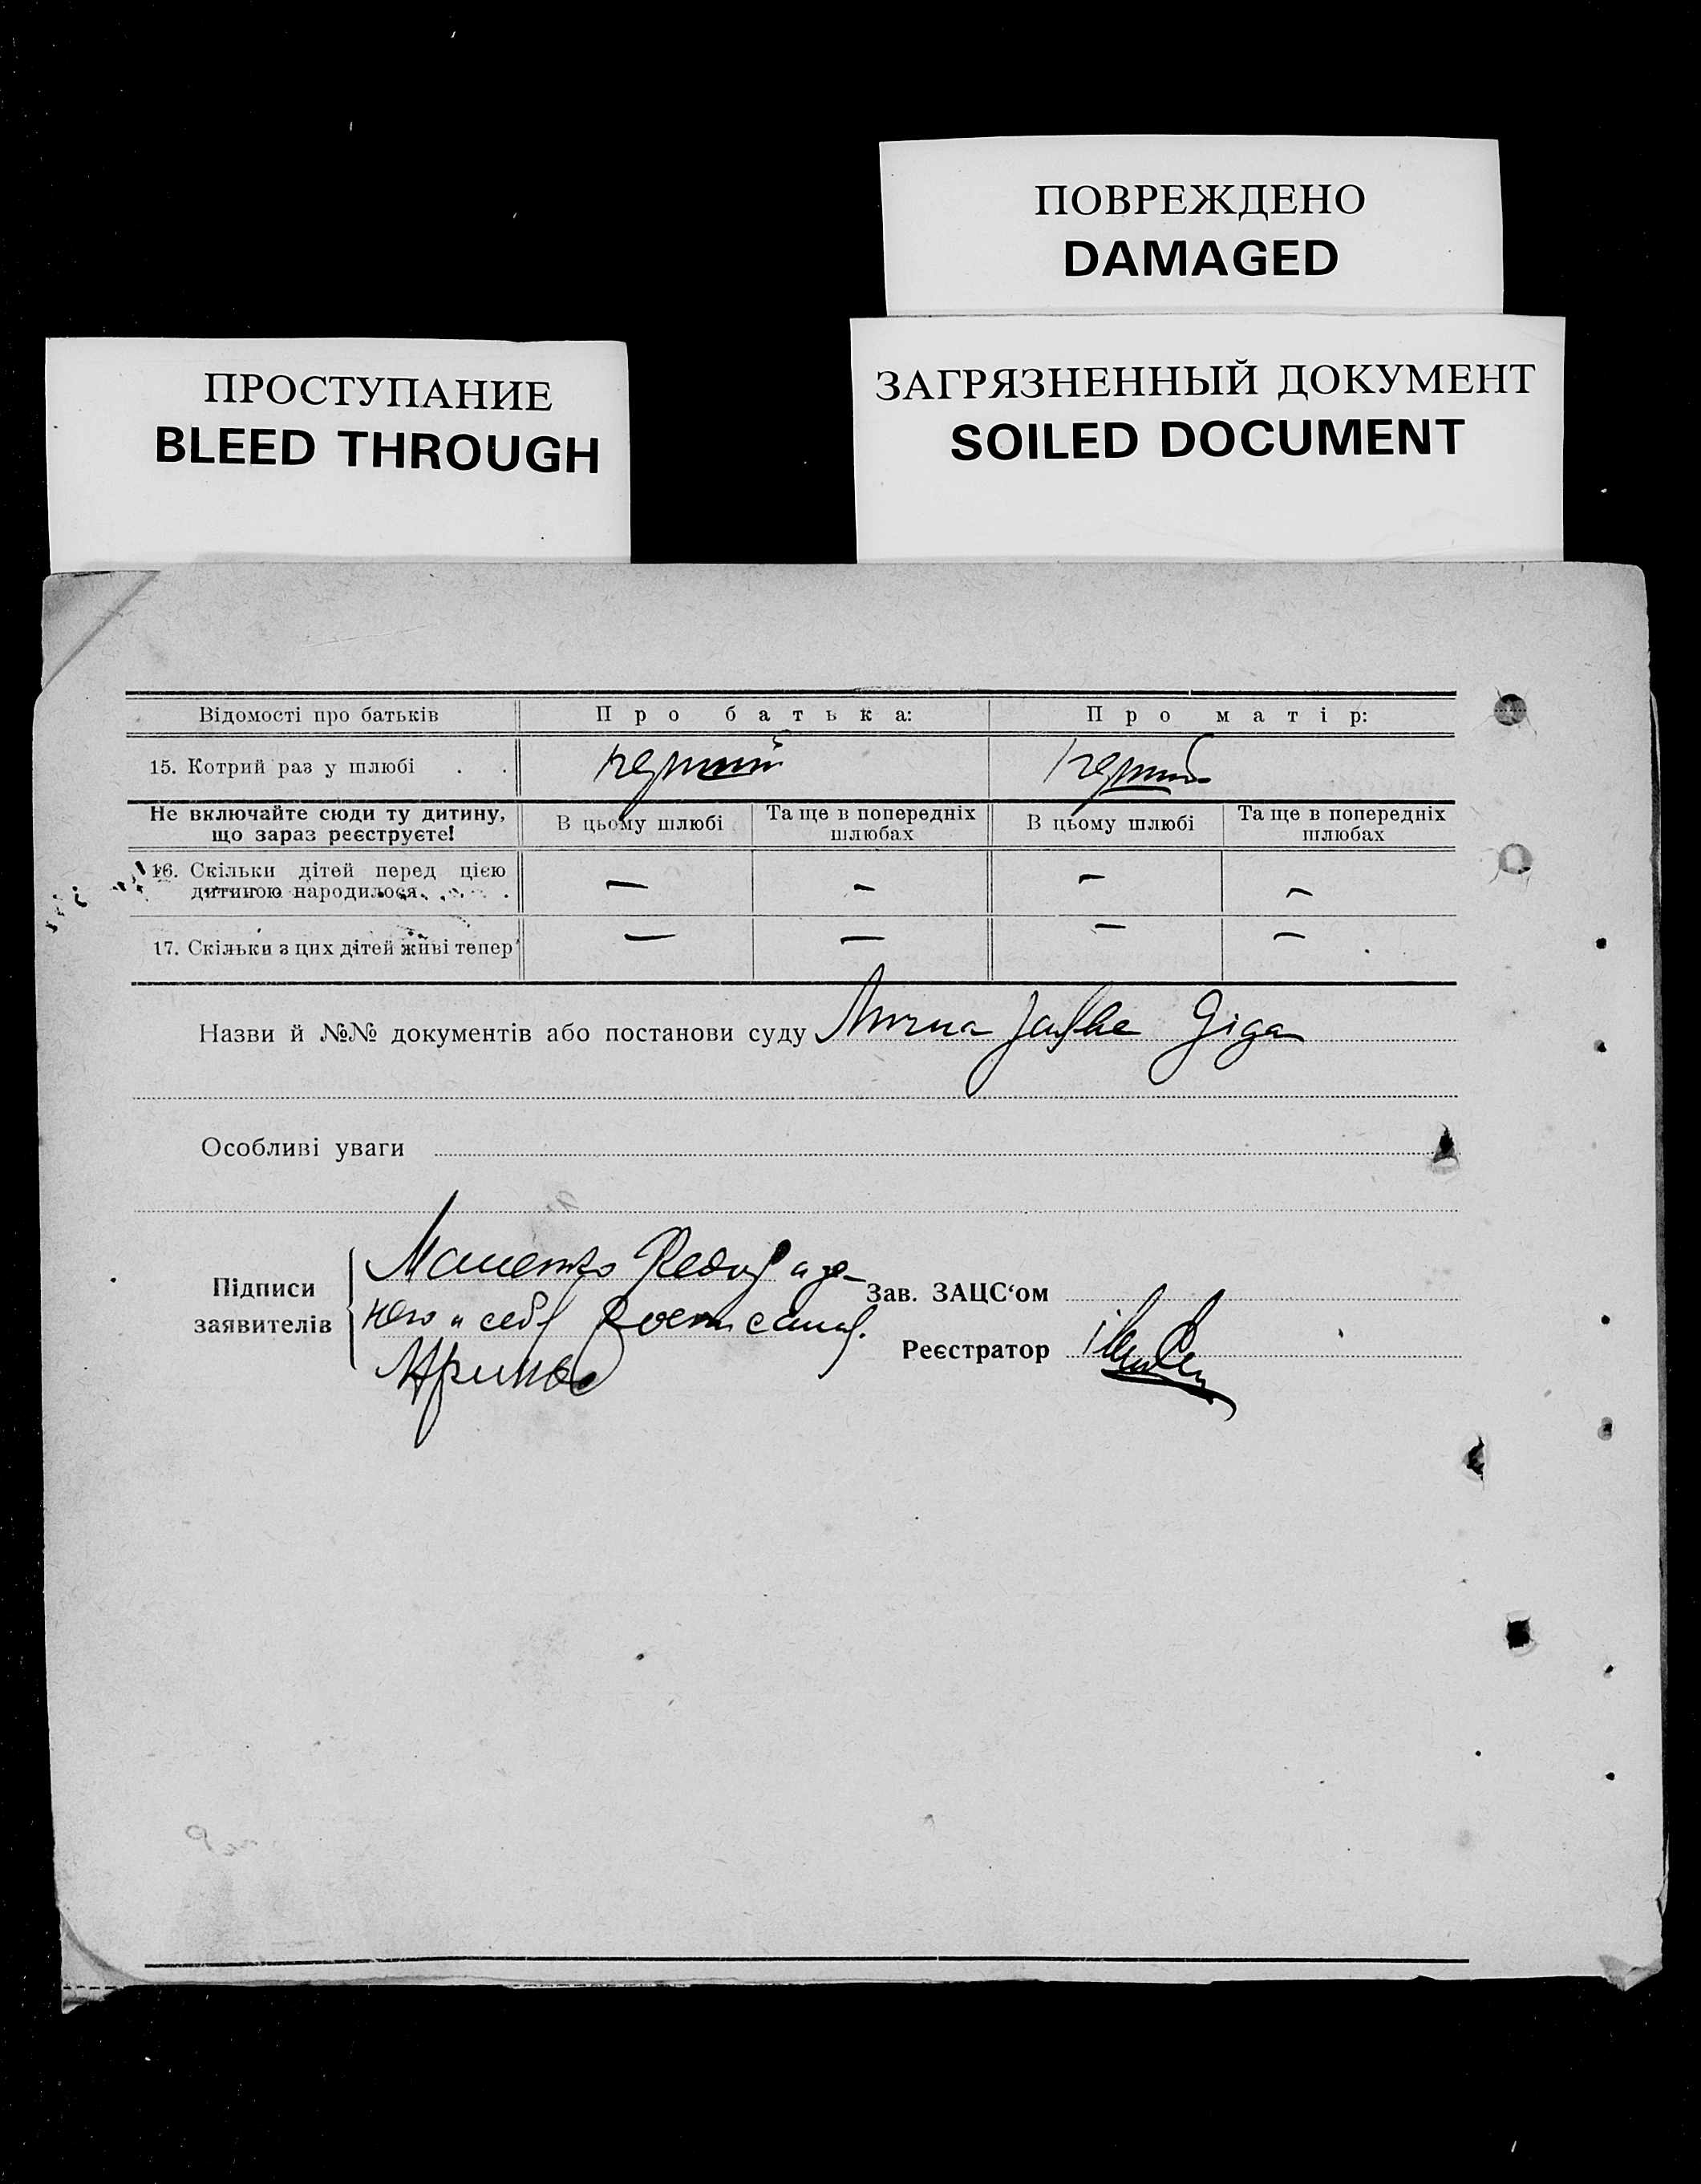 ПОВРЕЖДЕНО
DAMAGED
ПРОСТУПАНИЕ
BLEED THROUGH
ЗАГРЯЗНЕННЫЙ ДОКУМЕНТ
SOILED DOCUMENT
Відомості про батьків Про батька: Про матір:
15. Котрий раз у шлюбі . . перший перший
Не включайте сюди ту дитину, що зараз реєструєте! В цьому шлюбі Та ще в попередніх шлюбах В цьому шлюбі Та ще в попередніх шлюбах
16. Скільки дітей перед цією
дитиною народилося . . . — — — —
17. Скільки з цих дітей живі тепер — — — —
Назви й №№ документів або постанови суду
Особливі уваги
Підписи
заявителів
Зав. ЗАЦС‘ом
Реєстратор